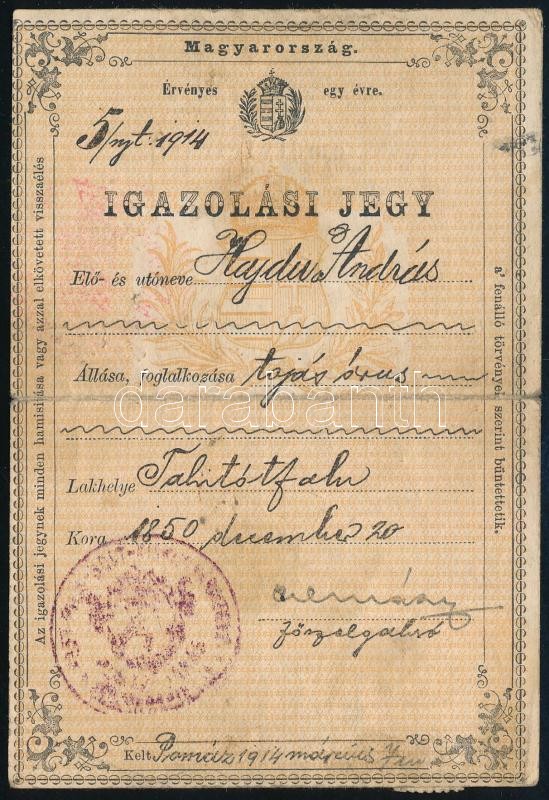 Magyarország.
Érvényes egy évre.
5/nyt. 1914
IGAZOLÁSI JEGY
Elő- és utóneve Hajdu András
Állása, foglalkozása tojás árus
darabanth
Lakhelye Tahitótfalu
Kora 1850 december 20
főszolgabíró
Kelt Pomáz 1914 március
Az igazolási jegynek minden hamisitása vagy azzal elkövetett visszaélés
a' fenálló törvények szerint büntettetik.